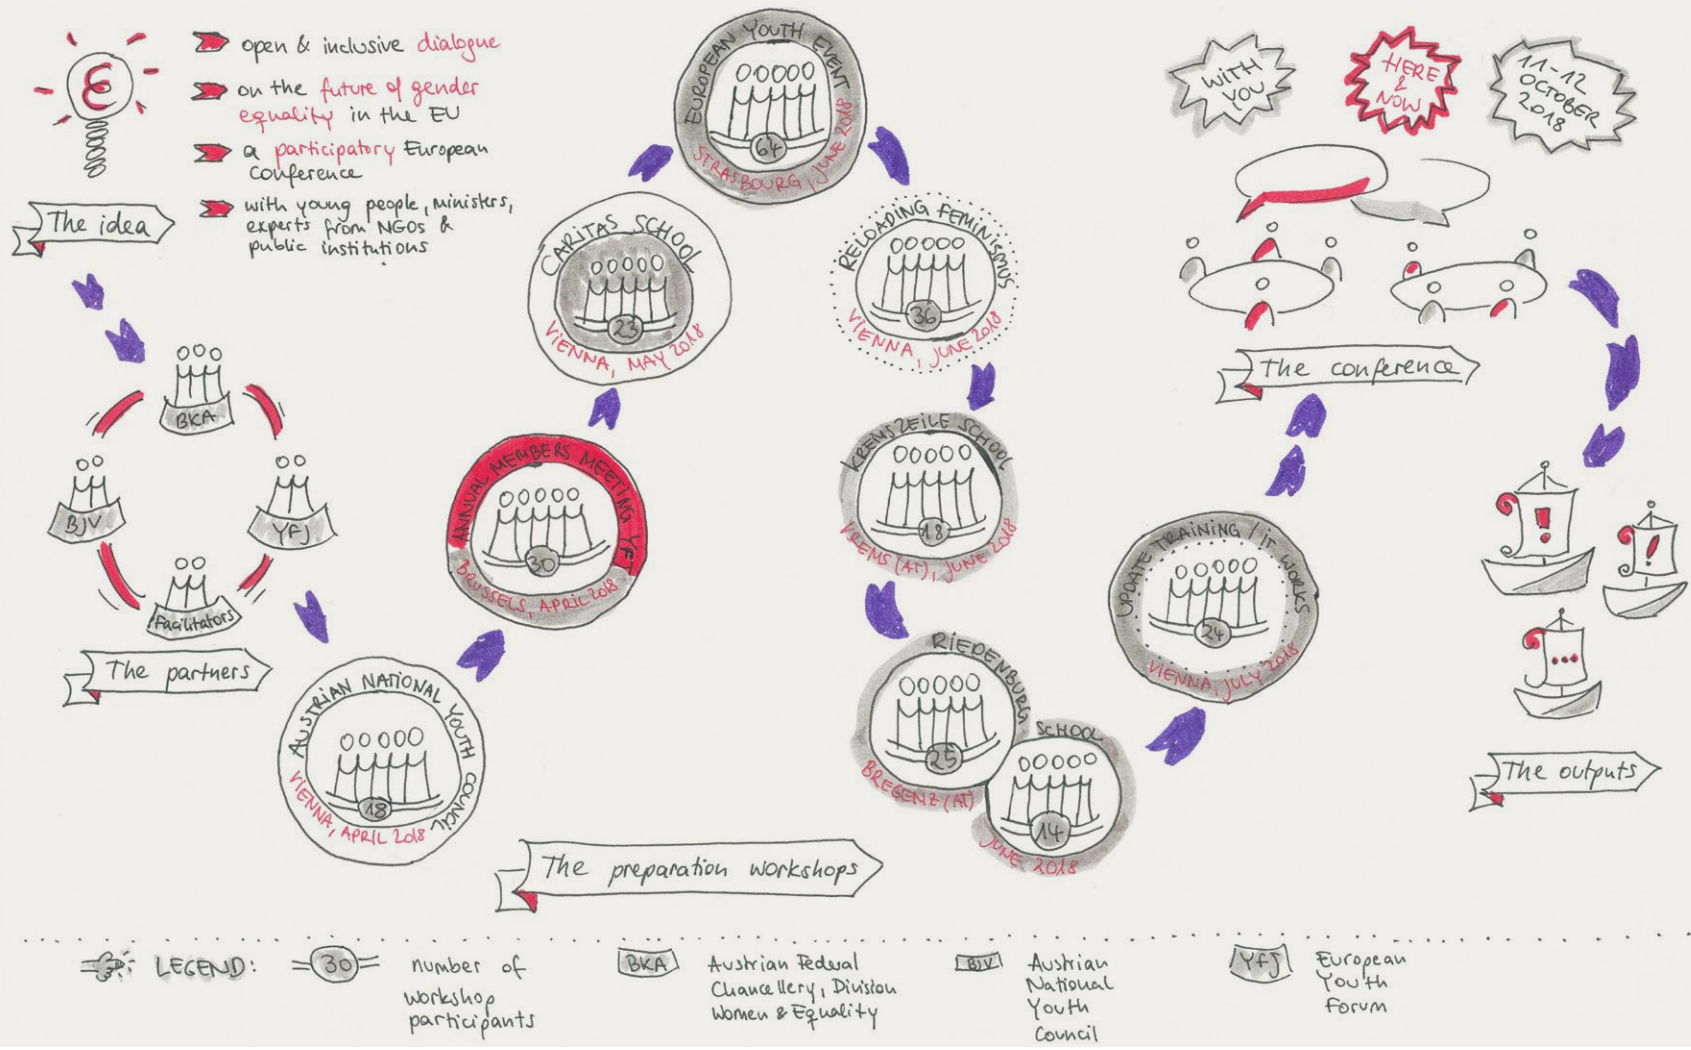 open & inclusive dialogue
on the future of gender
equality in the EU
a participatory European
Conference
with young people, ministers,
experts from NGOs &
public institutions
The idea
BKA
BJV
YFJ
Facilitators
The partners
AUSTRIAN NATIONAL YOUTH COUNCIL
18
VIENNA, APRIL 2018
ANNUAL MEMBERS MEETING YFJ
30
BRUSSELS, APRIL 2018
CARITAS SCHOOL
23
VIENNA, MAY 2018
EUROPEAN YOUTH EVENT
64
STRASBOURG, JUNE 2018
RELOADING FEMINISMUS
36
VIENNA, JUNE 2018
KREMSZEILE SCHOOL
18
KREMS (AT), JUNE 2018
RIEDENBURG SCHOOL
25
14
BREGENZ (AT)
JUNE 2018
UPDATE TRAINING / IT WORKS
24
VIENNA, JULY 2018
The preparation workshops
WITH
YOU
HERE
&
NOW
11-12
OCTOBER
2018
The conference
!
!
...
The outputs
LEGEND:
30
number of
workshop
participants
BKA
Austrian Federal
Chancellery, Division
Women & Equality
BJV
Austrian
National
Youth
Council
YFJ
European
Youth
Forum